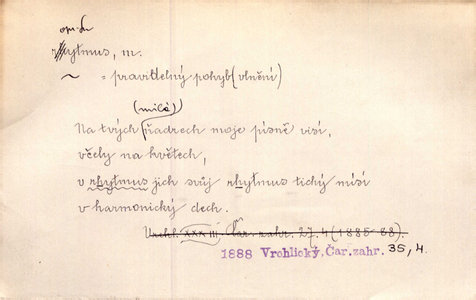 rhytmus, m.
~ = pravidelný pohyb (vlnění)
(milá)
Na tvých ňadrech moje písně visí,
včely na květech,
v rhytmus jich svůj rhytmus tichý mísí
v harmonický dech.
Vrchl. XXXIII, Čar. zahr. 27, 4 (1885-88).
1888 Vrchlický, Čar. zahr. 35, 4.